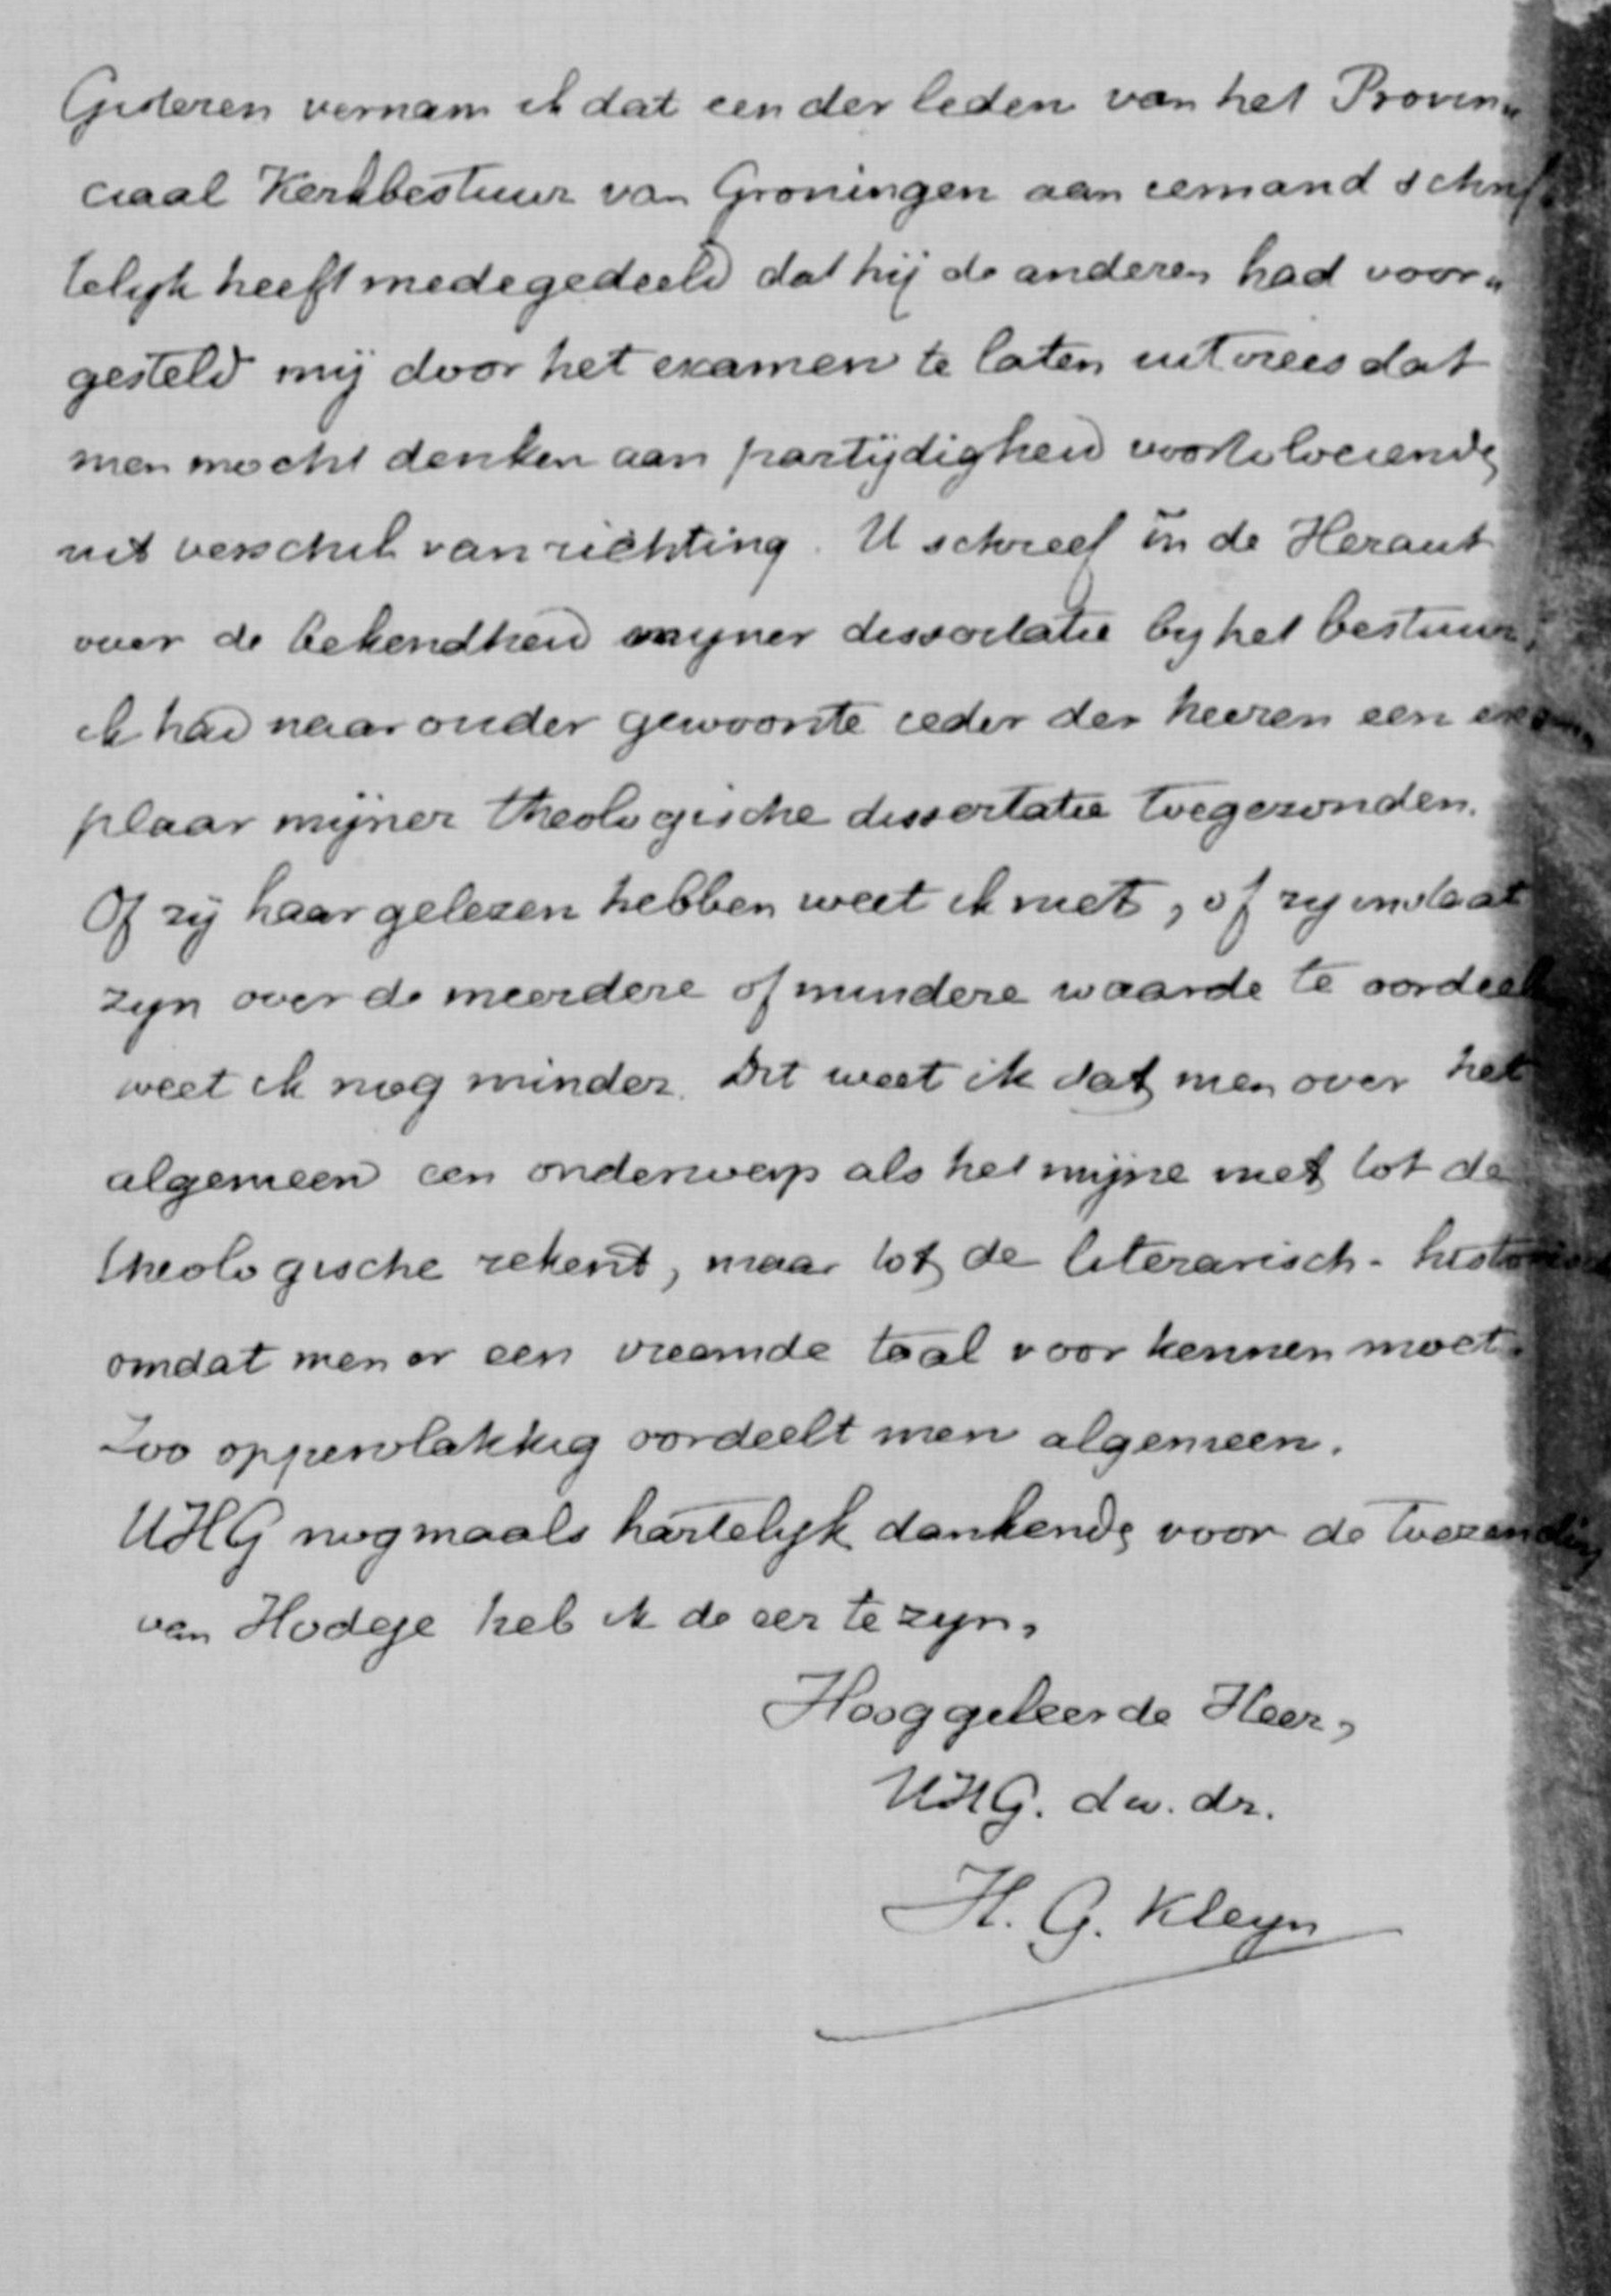 Gisteren vernam ik dat een der leden van het Provin„
ciaal Kerkbestuur van Groningen aan iemand schrif„
telijk heeft medegedeeld dat hij de anderen had voor„
gesteld mij door het examen te laten uit vrees dat
men mocht denken aan partijdigheid voortvloeiende
uit verschil van richting. U schreef in de Heraut
over de bekendheid mijner dissertatie bij het bestuur,
ik had naar ouder gewoonte ieder der heeren een exem„
plaar mijner theologische dissertatie toegezonden.
Of zij haar gelezen hebben weet ik niet, of zij instaat
zijn over de meerdere of mindere waarde te oordeel
weet ik nog minder. Dit weet ik dat men over het
algemeen een onderwerp als het mijne niet tot de
theologische rekent, maar tot de literarisch-historisch
omdat men er een vreemde taal voor kennen moet.
Zoo oppervlakkig oordeelt men algemeen.
UHG nogmaals hartelijk dankende voor de toezending
van Hodge heb ik de eer te zijn,
Hooggeleerde Heer,
UHG. dw. dr.
H. G. Kleyn